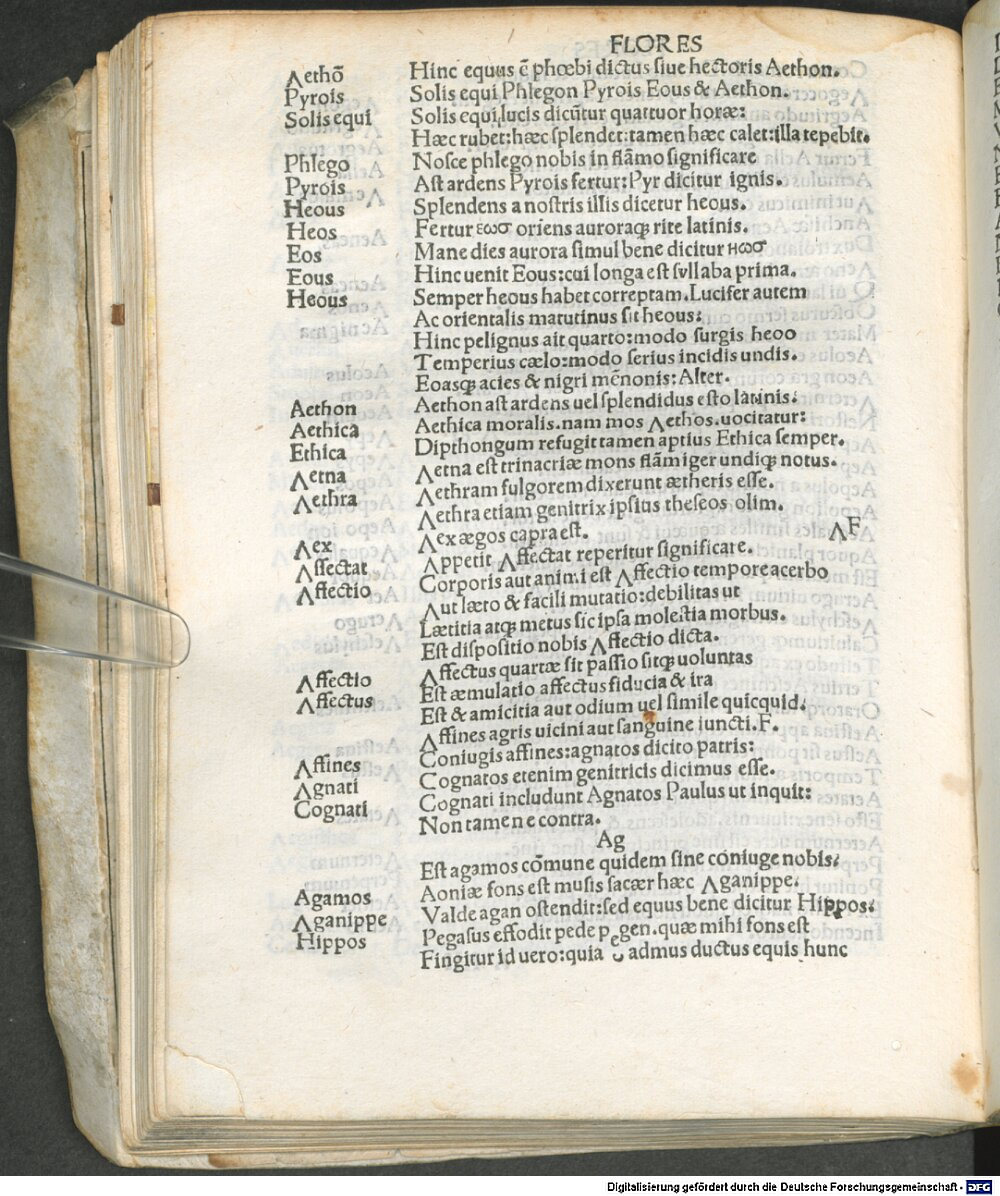 FLORES
Aethō Hinc equus ē phœbi dictus siue hectoris Aethon.
Pyrois Solis equi Phlegon Pyrois Eous & Aethon.
Solis equi Solis equi, lucis dicūtur quattuor horæ:
Hæc rubet: hæc splendet: tamen hæc calet: illa tepebit.
Phlego Nosce phlego nobis in flāmo significare
Pyrois Ast ardens Pyrois fertur: Pyr dicitur ignis.
Heous Splendens a nostris illis dicetur heous.
Heos Fertur εωσ oriens auroraqꝫ rite latinis.
Eos Mane dies aurora simul bene dicitur ηωσ
Eous Hinc uenit Eous: cui longa est syllaba prima.
Heous Semper heous habet correptam. Lucifer autem
Ac orientalis matutinus sit heous:
Hinc pelignus ait quarto: modo surgis heoo
Temperius cælo: modo serius incidis undis.
Eoasqꝫ acies & nigri mēnonis: Alter.
Aethon Aethon ast ardens uel splendidus esto latinis:
Aethica Aethica moralis. nam mos Aethos. uocitatur:
Ethica Dipthongum refugit tamen aptius Ethica semper.
Aetna Aetna est trinacriæ mons flāmiger undiqꝫ notus.
Aethra Aethram fulgorem dixerunt ætheris esse.
Aethra etiam genitrix ipsius theseos olim.
Aex Aex ægos capra est. AF
Affectat Appetit Affectat reperitur significare.
Affectio Corporis aut animi est Affectio tempore acerbo
Aut læto & facili mutatio: debilitas ut
Lætitia atqꝫ metus sic ipsa molestia morbus.
Est dispositio nobis Affectio dicta.
Affectio Affectus quartæ sit passio sitqꝫ uoluntas
Affectus Est æmulatio affectus fiducia & ira
Est & amicitia aut odium uel simile quicquid.
Affines agris uicini aut sanguine iuncti. F.
Affines Coniugis affines: agnatos dicito patris:
Agnati Cognatos etenim genitricis dicimus esse.
Cognati Cognati includunt Agnatos Paulus ut inquit:
Non tamen e contra.
Ag
Est agamos cōmune quidem sine coniuge nobis:
Agamos Aoniæ fons est musis sacær hæc Aganippe:
Aganippe Valde agan ostendit: sed equus bene dicitur Hippos:
Hippos Pegasus effodit pede pegen. quæ mihi fons est
Fingitur id uero: quia cadmus ductus equis hunc
Digitalisierung gefördert durch die Deutsche Forschungsgemeinschaft - DFG